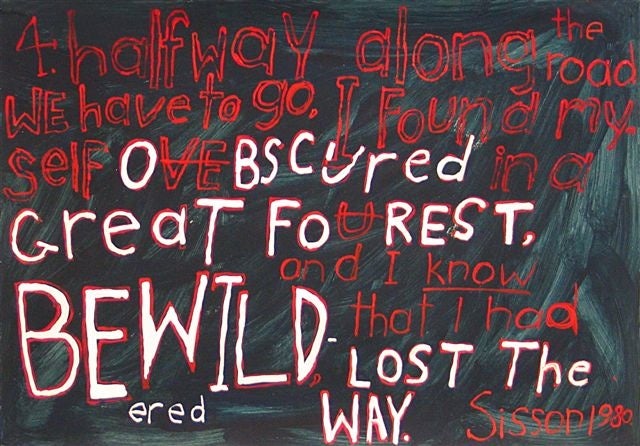 4. halfway along the road
WE have to go, I Found my
self OVEBSCUred in a
GreaT FoUREST,
and I know
BEWILD- that I had
ered LOST The
WAY. Sisson 1980